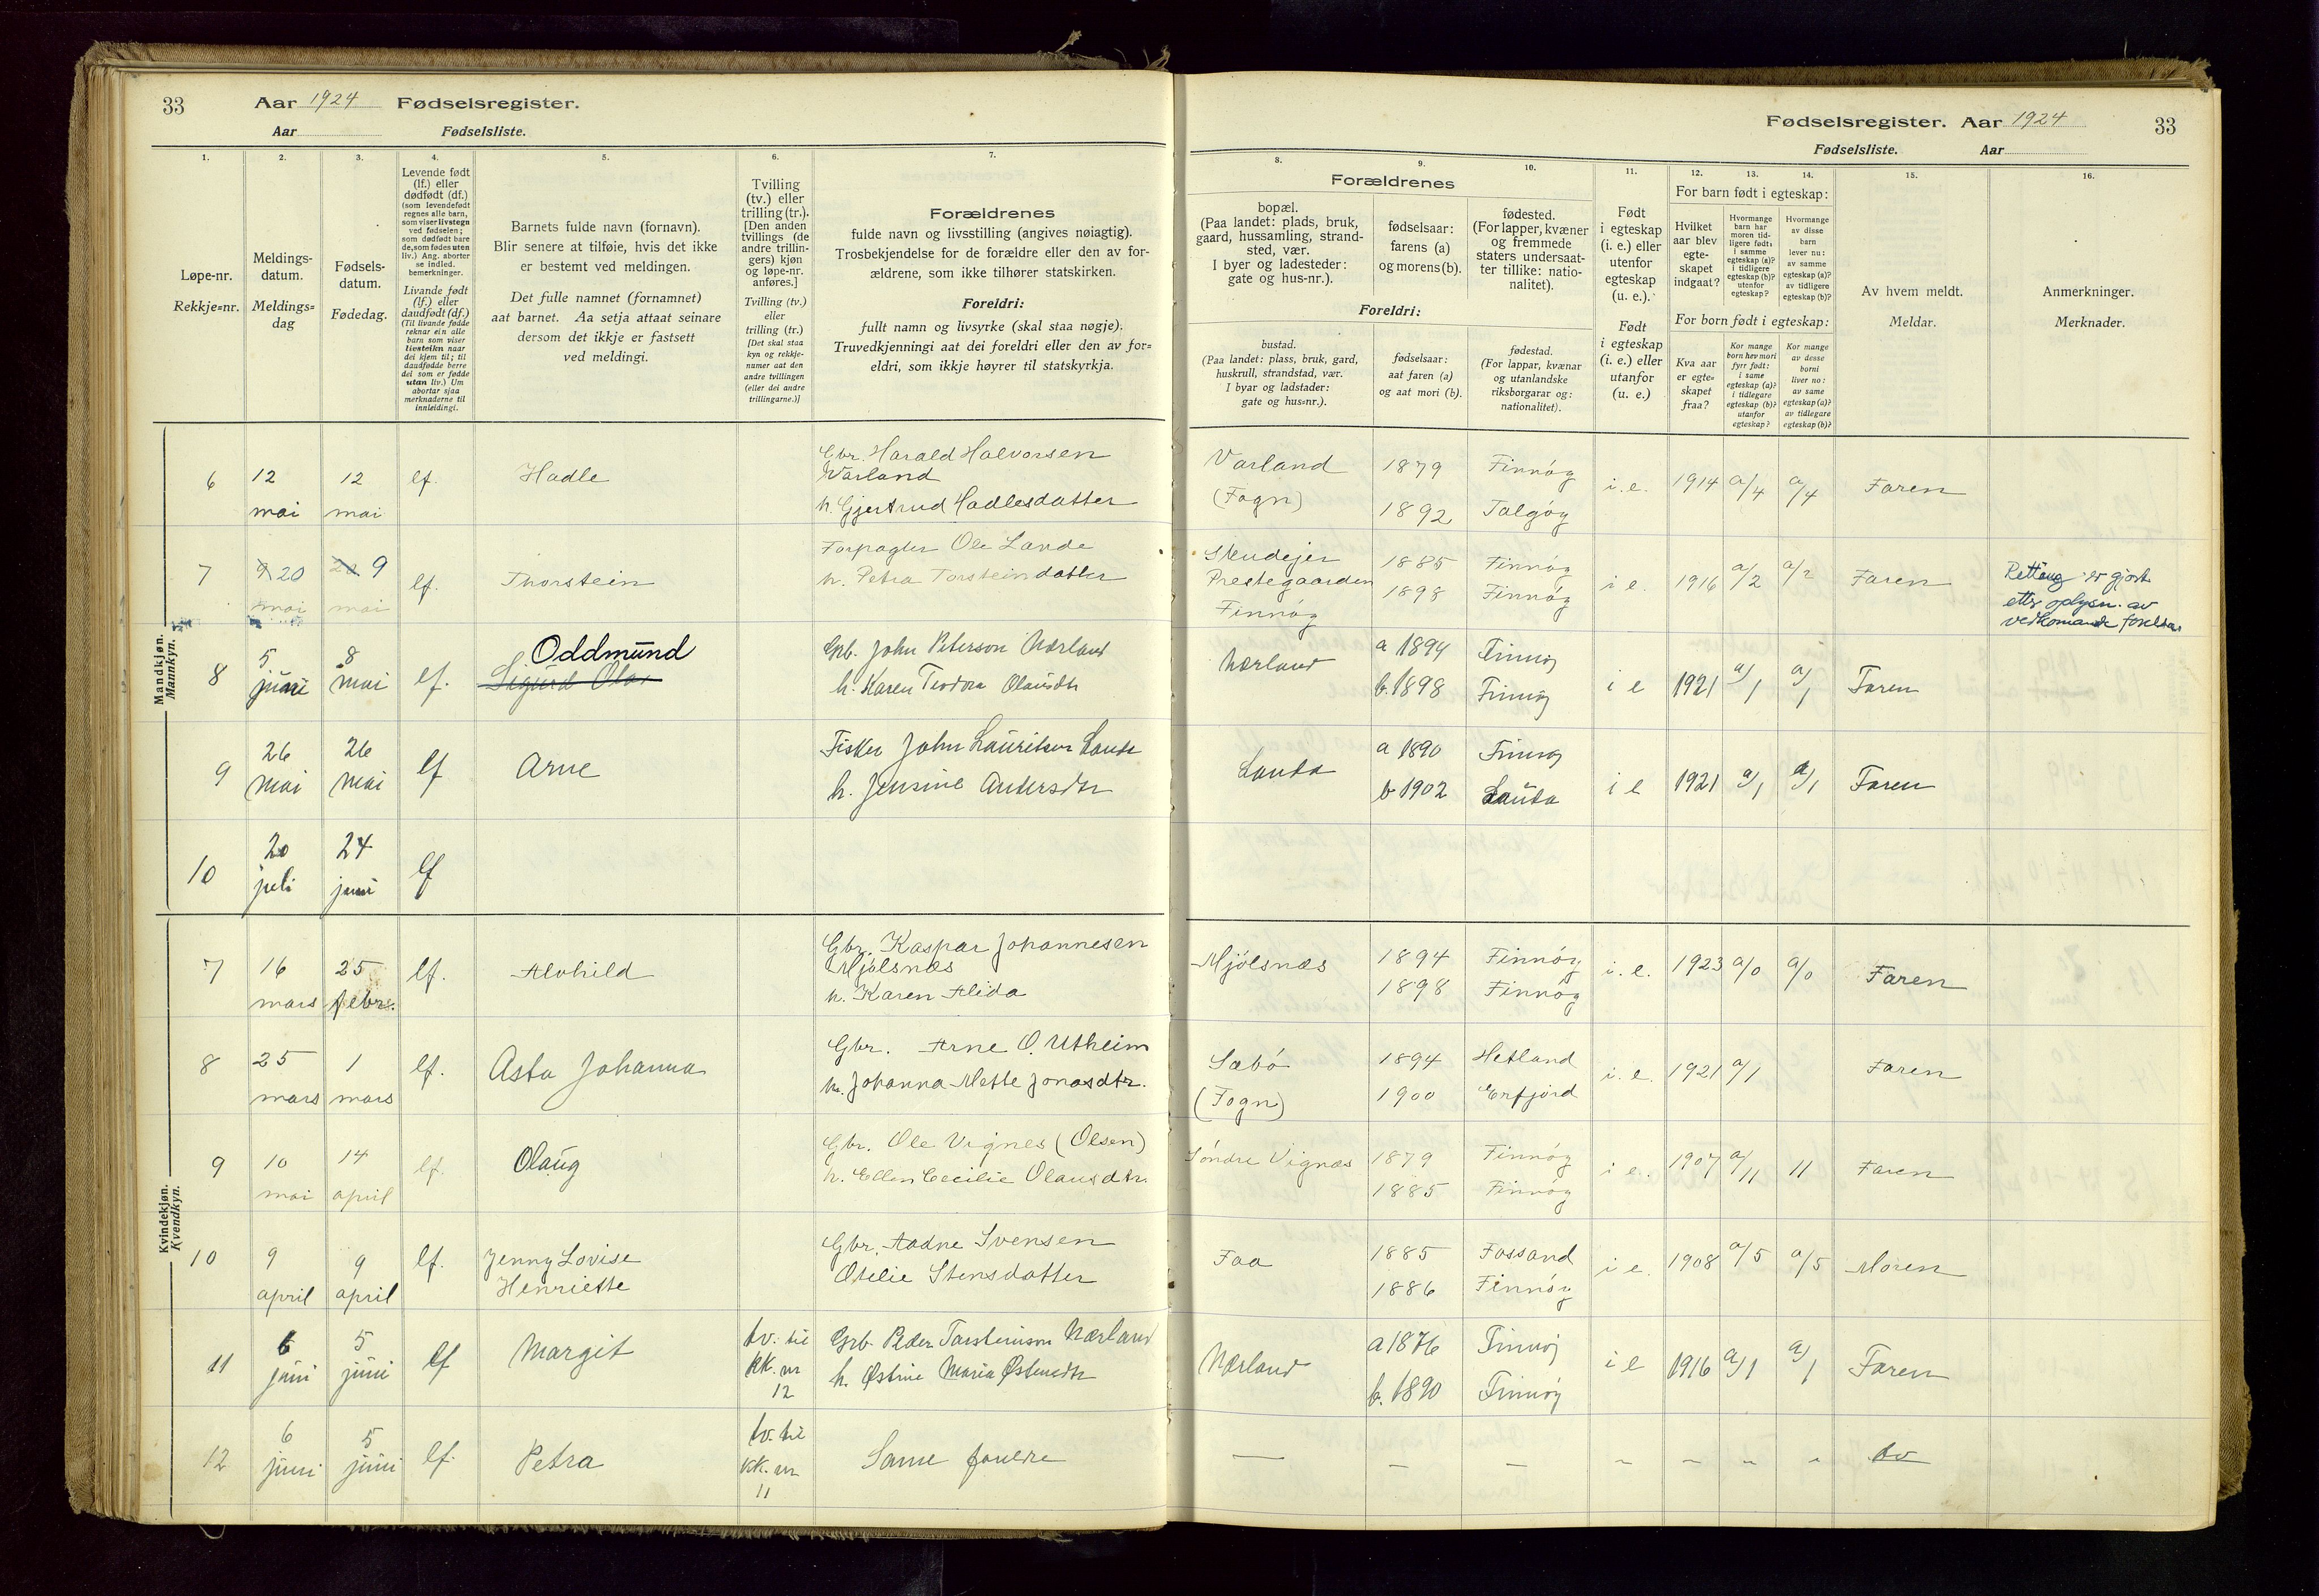 33 Aar 1924 Fødselsregister.
Aar Fødselsliste.
1.
2.
3.
4.
5.
6.
7.
Løpe-nr.
Rekkje=nr.
Meldings-
datum.
Meldings=
dag
Fødsels-
datum.
Fødedag.
Levende født
(lf.) eller
dødfødt (df.)
(som levendefødt
regnes alle barn,
som viser livstegn
ved fødselen;
som dødfødt bare
de, som fødes uten
liv.) Ang. aborter
se indled.
bemerkninger.
Livande født
(lf.) eller
daudfødt (df.)
(Til livande fødde
reknar ein alle
barn som viser
livsteikn naar
dei kjem til; til
daudfødde berre
dei som er fødde
utan liv.) Um
abortar sjaa
merknaderne til
innleidingi.
Barnets fulde navn (fornavn).
Blir senere at tilføie, hvis det ikke
er bestemt ved meldingen.
Det fulle namnet (fornamnet)
aat barnet. Aa setja attaat seinare
dersom det ikkje er fastsett
ved meldingi.
Tvilling
(tv.) eller
trilling (tr.).
[Den anden
tvillings (de
andre trillin-
gers) kjøn
og løpe-nr.
anføres.]
Tvilling (tv.)
eller
trilling (tr.)
[Det skal staa
kyn og rekkje-
numer aat den
andre tvillingen
(eller dei andre
trillingarne.)]
Forældrenes
fulde navn og livsstilling (angives nøiagtig).
Trosbekjendelse for de forældre eller den av for-
ældrene, som ikke tilhører statskirken.
Foreldri:
fullt namn og livsyrke (skal staa nøgje).
Truvedkjenningi aat dei foreldri eller den av for=
eldri, som ikkje høyrer til statskyrkja.
Fødselsregister. Aar 1924 33
Fødselsliste. Aar
8.
9.
10.
11.
12.
13.
14.
15.
16.
Forældrenes
bopæl.
(Paa landet: plads, bruk,
gaard, hussamling, strand-
sted, vær.
I byer og ladesteder:
gate og hus-nr.).
fødselsaar:
farens (a)
og morens (b).
fødested.
(For lapper, kvæner
og fremmede
staters undersaat-
ter tillike: natio-
nalitet).
Foreldri:
bustad.
(Paa landet: plass, bruk, gard,
huskrull, strandstad, vær.
I byar og ladstader:
gate og hus=nr.).
fødselsaar:
aat faren (a)
og aat mori (b).
fødestad.
(For lappar, kvænar
og utanlandske
riksborgarar og:
nationalitet).
Født
i egteskap
(i. e.) eller
utenfor
egteskap
(u. e.).
Født
i egteskap
(i. e.) eller
utanfor
(u. e.)
For barn født i egteskap:
Hvilket
aar blev
egte-
skapet
indgaat?
Hvormange
barn har
moren tid-
ligere født:
i samme
egteskap (a)?
i tidligere
egteskap (b)?
utenfor
egteskap?
Hvormange
av disse
barn
lever nu:
av samme
egteskap (a)?
av tidligere
egteskap (b)?
For born født i egteskap:
Kva aar
er egte=
skapet
fraa?
Kor mange
born hev mori
fyrr født:
i same
egteskap (a)?
i tidlegare
egteskap (b)?
utanfor
egteskap?
Kor mange
av desse
borni
liver no:
av same
egteskap (a)?
av tidlegare
egteskap (b)?
Av hvem meldt.
Meldar.
Anmerkninger.
Merknader.
Mandkjøn.
Mannkyn.
6 12 mai 12 mai lf. Hadle
Gbr. Harald Halvorsen
Varland
h. Gjertrud Hadlesdatter
Varland (Fogn) 1879 Finnøy
1892 Talgøy
i. e. 1914 a/4 a/4 Faren
7 9 20 mai 20 9 mai lf. Thorstein
Forpagter Ole Lande
h. Petra Torsteindatter
Prestegaarden
Finnøy
1885 Finnøy
1898 Finnøy
i e. 1916 a/2 a/2 Faren
Retting er gjort
etter oplysn. av
vedkomande foreldre.
8 5 juni 8 mai lf. Oddmund
Sigurd Olav
Grb. John Peterson Nærland
h. Karen Teodora Olausdtr
Nærland a 1894 Finnøy
b. 1898 Finnøy
i e 1921 a/1 a/1 Faren
9 26 mai 26 mai lf Arne
Fisker John Lauritsen Lauda
h. Jensine Andersdtr
Lauda a 1890 Finnøy
b 1902 Lauda
i e 1921 a/1 a/1 Faren
10 20 juli 24 juni lf
Kvindekjøn.
Kvendkyn.
7 16 mars 25 febr. lf. Alvhild
Gbr. Kaspar Johannesen
Mjølsnæs
h. Karen Alida
Mjølsnæs 1894 Finnøy
1898 Finnøy
i. e. 1923 a/0 a/0 Faren
8 25 mars 1 mars lf. Asta Johanna
Gbr. Arne O. Utheim
h. Johanna Mette Jonasdtr.
Sæbø (Fogn) 1894 Hetland
1900 Erfjord
i. e. 1921 a/1 Faren
9 10 mai 14 april lf. Olaug
Gbr. Ole Vignes (Olsen)
h. Ellen Cecilie Olausdtr.
Søndre Vignæs 1879 Finnøy
1885 Finnøy
i e. 1907 a/11 11 Faren
10 9 april 9 april lf. Jenny Lovise
Henriette
Gbr. Aadne Svensen
Otelie Stensdatter
Faa 1885 Fossand
1886 Finnøy
i e. 1908 a/5 a/5 Moren
11 6 juni 5 juni lf Margit
tv. til
KK. nr
12
Grb. Peder Torsteinson Nærland
h. Østine Maria Østensdtr
Nærland a 1876 Finnøy
b. 1890 Finnøy
i e 1916 a/1 a/1 Faren
12 6 juni 5 juni lf. Petra
tv. til
KK. nr
11
Same foreldre
— — — ~ ~ ~ ~ do